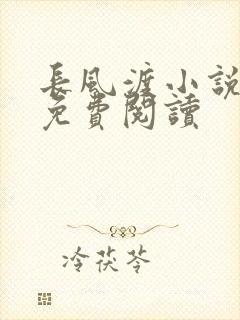 長風渡小說
免費閱讀
冷茯苓